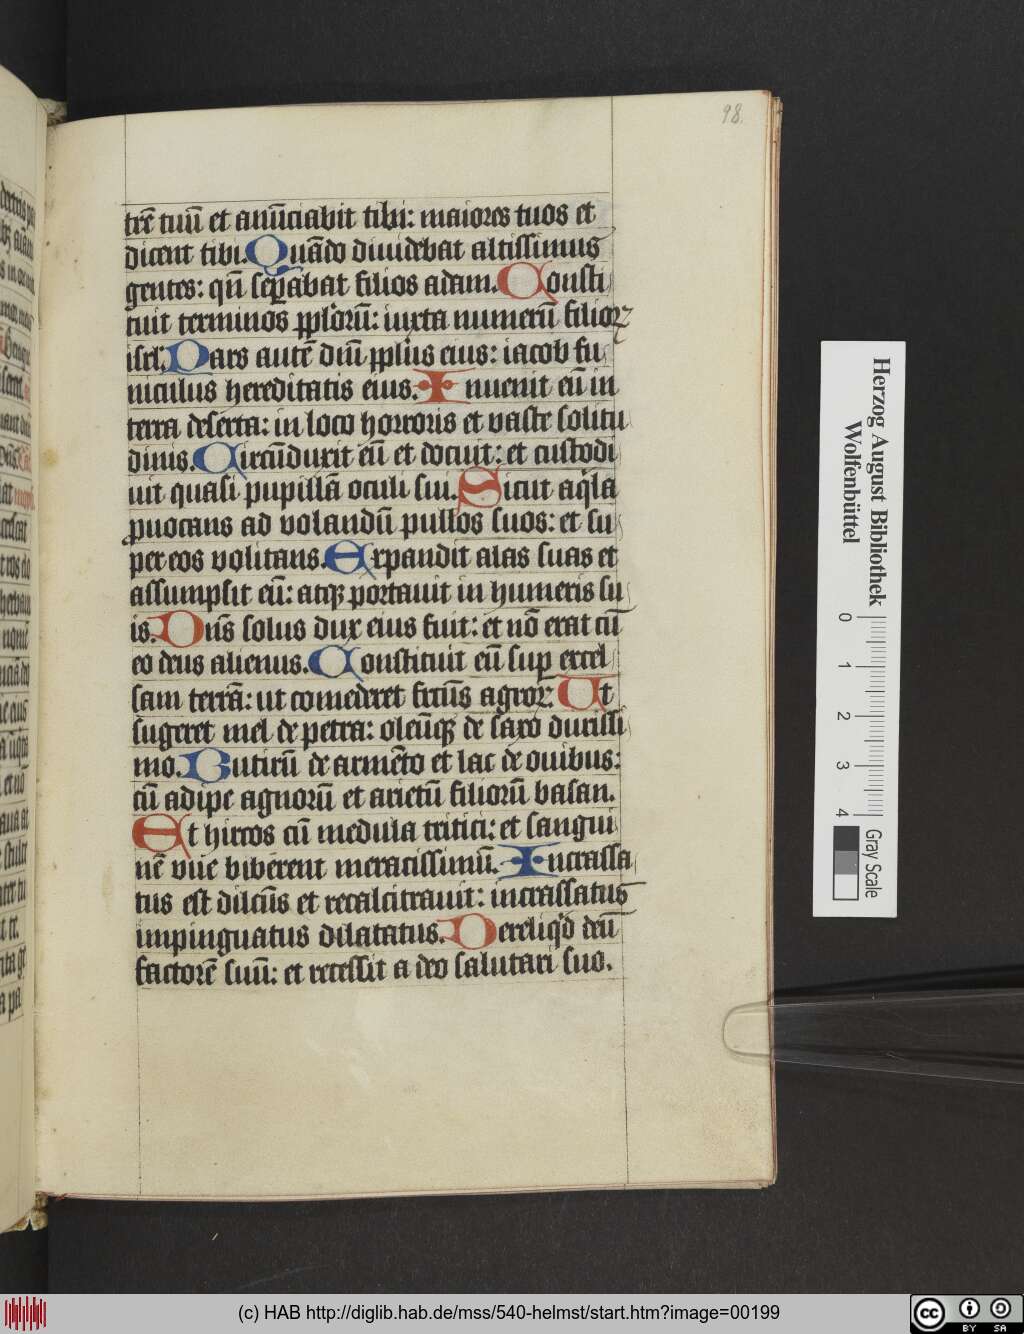 98.
trē tuū et anūciabit tibi: maiores tuos et
dicent tibi. Quādo diuidebat altissimus
gentes: qn̄ sep̄abat filios adam. Consti
tuit terminos pp̄lorū: iuxta numerū filioꝝ
isrl̄. Pars autē dn̄i pp̄lus eius: iacob fu
niculus hereditatis eius. Inuenit eū in
terra deserta: in loco horroris et vaste solitu
dinis. Circūduxit eū et docuit: et custodi
uit quasi pupillā oculi sui. Sicut aq̄la
ꝓuocans ad volandū pullos suos: et su
per eos volitans. Expandit alas suas et
assumpsit eū: atqꝫ portauit in humeris su
is. Dn̄s solus dux eius fuit: et nō erat cū
eo deus alienus. Constituit eū suꝑ excel
sam terrā: ut comederet fructus agroꝝ. Ut
sugeret mel de petra: oleūqꝫ de saxo durissi
mo. Butirū de armēto et lac de ouibus:
cū adipe agnorū et arietū filiorū basan.
Et hircos cū medulla tritici: et sangui
nē vue biberent meracissimū. Incrassa
tus est dilc̄us et recalcitrauit: incrassatus
impinguatus dilatatus. Dereliq̇d deū
factorē suū: et recessit a deo salutari suo.
Herzog August Bibliothek
Wolfenbüttel
0
1
2
3
4
Gray Scale
(c) HAB http://diglib.hab.de/mss/540-helmst/start.htm?image=00199
CC BY SA